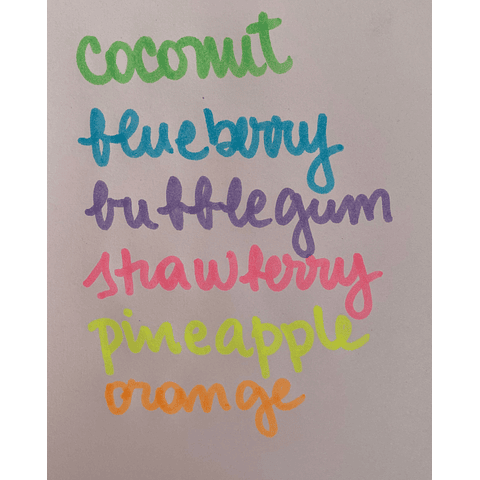 coconut
blueberry
bubblegum
strawberry
pineapple
orange